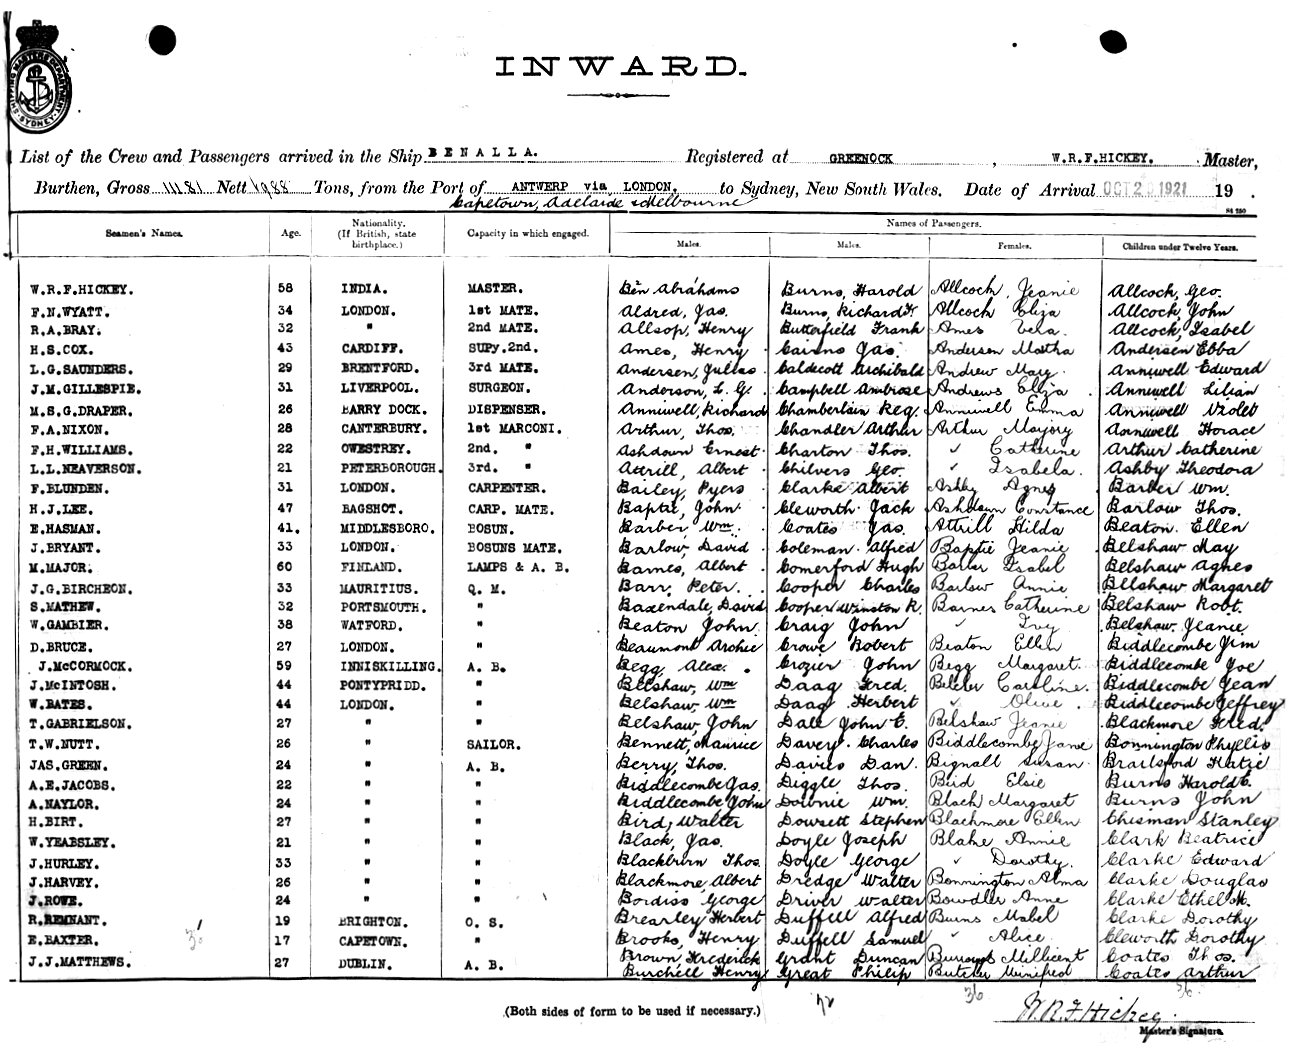 SHIPPING MASTER'S DEPARTMENT
SYDNEY
INWARD.
List of the Crew and Passengers arrived in the Ship BENALLA. Registered at GREENOCK, W.R.F.HICKEY. Master,
Burthen, Gross 11181 Nett 1988 Tons, from the Port of ANTWERP via LONDON, to Sydney, New South Wales. Date of Arrival OCT 1921 19 .
Capetown, Adelaide & Melbourne
Seamen's Names. Age. Nationality. (If British, state birthplace.) Capacity in which engaged. Names of Passengers.
Males. Males. Females. Children under Twelve Years.
W.R.F.HICKEY. 58 INDIA. MASTER. Ben Abrahams Burns, Harold Allcock, Jeanie Allcock, Geo.
F.N.WYATT. 34 LONDON. 1st MATE. Aldred, Jas. Burns, Richard F. Allcock Eliza Allcock, John
R.A.BRAY. 32 " 2nd MATE. Allsop, Henry Butterfield Frank Ames Vera. Allcock, Isabel
H.S.COX. 43 CARDIFF. SUPy.2nd. Ames, Henry Cairns Jas. Andersen Martha Andersen Ebba
L.G.SAUNDERS. 29 BRENTFORD. 3rd MATE. Andersen, Julius Caldecott Archibald Andrew May. Anniwell Edward
J.M.GILLESPIE. 31 LIVERPOOL. SURGEON. Anderson, L.G. Campbell Ambrose Andrews Eliza Anniwell Lilian
M.S.G.DRAPER. 26 BARRY DOCK. DISPENSER. Anniwell, Richard Chamberlain Reg. Anniwell Emma Anniwell Violet
F.A.NIXON. 28 CANTERBURY. 1st MARCONI. Arthur, Thos. Chandler Arthur Arthur Marjory Anniwell Horace
F.H.WILLIAMS. 22 OWESTREY. 2nd. " Ashdown Ernest Charton Thos. " Catherine Arthur Catherine
L.L.NEAVERSON. 21 PETERBOROUGH. 3rd. " Attrill, Albert Chilvers Geo. " Isabela. Ashby Theodora
F.BLUNDEN. 31 LONDON. CARPENTER. Bailey, Pyers Clarke Albert Ashby Agnes Barber Wm.
H.J.LEE. 47 BAGSHOT. CARP. MATE. Baptie, John Cleworth Jack Ashdown Constance Barlow Thos.
E.HASMAN. 41. MIDDLESBORO. BOSUN. Barber Wm. Coates Jas. Attrill Hilda Beaton. Ellen
J.BRYANT. 33 LONDON. BOSUNS MATE. Barlow, David Coleman. Alfred Baptie Jeanie Belshaw May
M.MAJOR. 60 FINLAND. LAMPS & A. B. Barnes, Albert Comerford Hugh Barber Isabel Belshaw Agnes
J.G.BIRCHEON. 33 MAURITIUS. Q. M. Barr, Peter. Cooper Charles Barlow Annie Belshaw Margaret
S.MATHEW. 32 PORTSMOUTH. " Baxendale, David Cooper Winston R. Barnes Catherine Belshaw Robt.
W.GAMBIER. 38 WATFORD. " Beaton John. Craig John " Ivy Belshaw. Jeanie
D.BRUCE. 27 LONDON. " Beaumont Archie Crowe Robert Beaton Ellen Biddlecombe Jim
J.McCORMOCK. 59 INNISKILLING. A. B. Begg, Alex. Crozier John Begg Margaret. Biddlecombe Joe
J.McINTOSH. 44 PONTYPRIDD. " Belshaw, Wm Daag Fred. Belcher Caroline. Biddlecombe Jean
W.BATES. 44 LONDON. " Belshaw, Wm Daag Herbert " Olive. Biddlecombe Jeffrey
T.GABRIELSON. 27 " " Belshaw, John Dale John E. Belshaw Jeanie Blackmore Fred.
T.W.NUTT. 26 " SAILOR. Bennett, Maurice Davey. Charles Biddlecombe Jane Bonnington Phyllis
JAS.GREEN. 24 " A. B. Berry, Thos. Davies Dan. Bignall Susan. Brailsford Katie
A.E.JACOBS. 22 " " Biddlecombe Jas. Diggle Thos. Bird Elsie Burns Harold E.
A.NAYLOR. 24 " " Biddlecombe John Downie Wm. Black Margaret Burns John
H.BIRT. 27 " " Bird, Walter Dowsett Stephen Blackmore Ellen Chisman Stanley
W.YEABSLEY. 21 " " Black, Jas. Doyle Joseph Blake Annie Clark Beatrice
J.HURLEY. 33 " " Blackburn Thos. Doyle George " Dorothy. Clarke Edward
J.HARVEY. 26 " " Blackmore Albert Dredge Walter Bonnington Alma Clarke Douglas
J.ROWE. 24 " " Bordiss George Driver Walter Bowdler Anne Clarke Ethel M.
R.REMNANT. 19 BRIGHTON. O. S. Brearley Herbert Duffell Alfred Burns Mabel Clarke Dorothy
E.BAXTER. 17 CAPETOWN. " Brooks, Henry Duffell Samuel " Alice. Cleworth Dorothy
J.J.MATTHEWS. 27 DUBLIN. A. B. Brown Frederick Grant Duncan Burrows Millicent Coates Thos.
Burchell Henry Great Philip Butcher Winifred Coates Arthur
(Both sides of form to be used if necessary.) 72 36 36
W.R.F.Hickey.
Master's Signature.